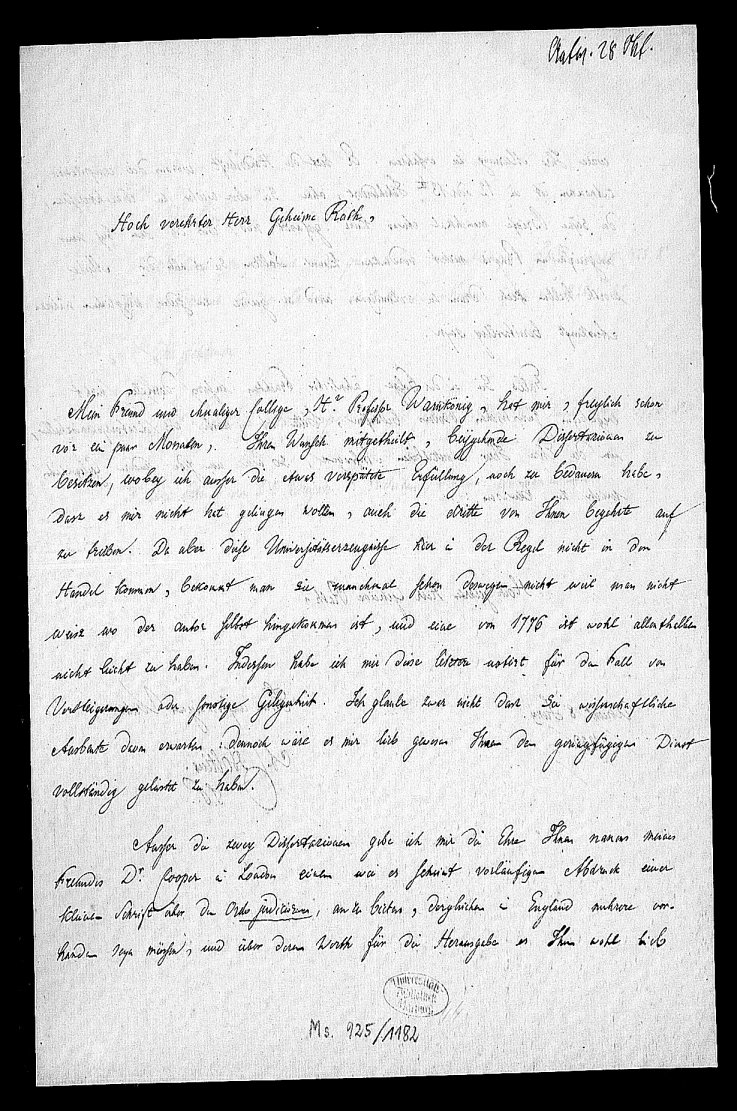 28 Okt.
Hoch verehrter Herr Geheime Rath,
Mein Freund und ehmaliger College, Hr. Professor Warnkönig, hat mir, freylich schon
vor ein paar Monaten, Ihren Wunsch mitgetheilt, beygehende Dissertazionen zu
besitzen, wobey ich ausser die etwas verspätete Erfüllung, noch zu bedauern habe,
dasz es mir nicht hat gelingen wollen, auch die dritte von Ihnen begehrte auf
zu treiben. Da aber diese Universitätserzeugnisse hier in der Regel nicht in den
Handel kommen, bekommt man sie manchmal schon deswegen nicht weil man nicht
weisz wo der autor selbst hingekommen ist, und eine von 1776 ist wohl allenthalben
nicht leicht zu haben. Indessen habe ich mir diese letztere notirt für den Fall von
Versteigerungen oder sonstige Gelegenheit. Ich glaube zwar nicht dasz Sie wissenschaftliche
Ausbeute davon erwarten: dennoch wäre es mir lieb gewesen Ihnen den geringfügigen Dienst
vollständig geleistet zu haben.
Ausser die zwey Dissertazionen gebe ich mir die Ehre Ihnen namens meines
Freundes Dr. Cooper in London einen wie es scheint vorläufigen Abdruck einer
kleinen Schrift über den Ordo judiciarius, anzubieten, dergleichen in England mehrere vor-
handen seyn müssen, und über deren Werth für die Herausgabe es Ihm wohl lieb
Universitäts-
Bibliothek
Marburg
Ms. 925/1182